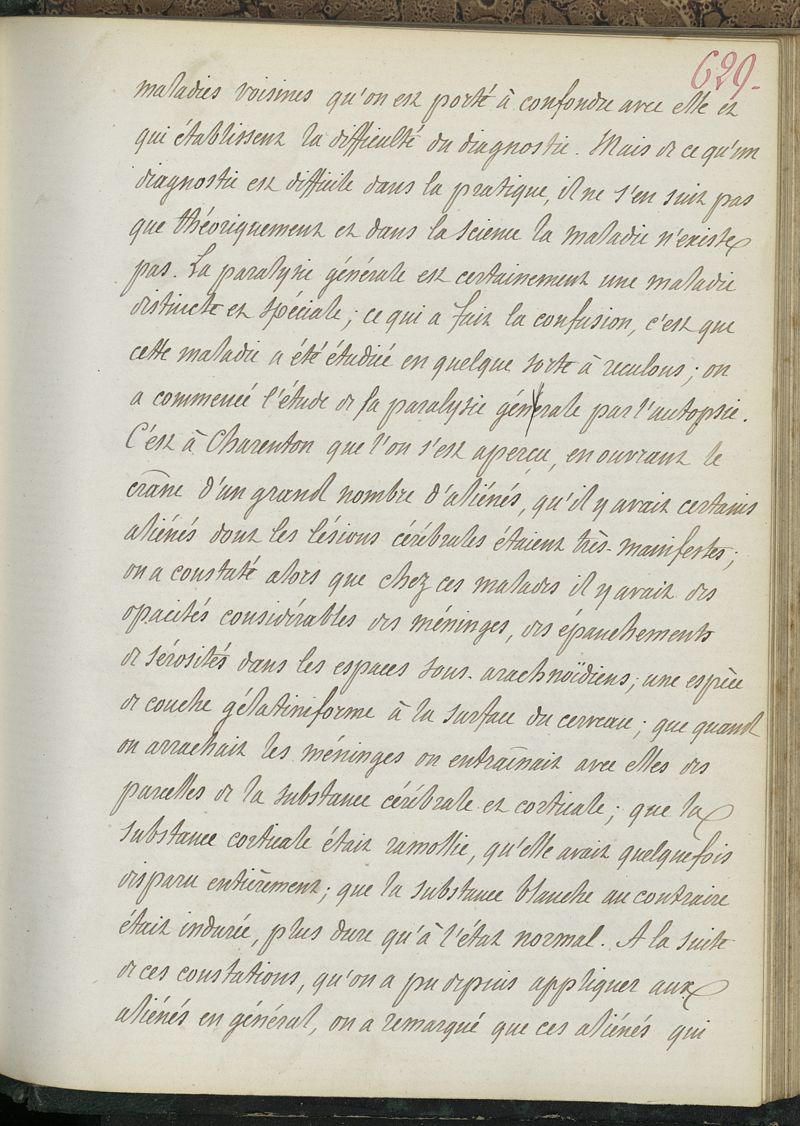 629.
maladies voisines qu'on est porté à confondre avec elle et
qui établissent la difficulté du diagnostic. Mais de ce qu'un
diagnostic est difficile dans la pratique, il ne s'en suit pas
que théoriquement et dans la science la maladie n'existe
pas. La paralysie générale est certainement une maladie
distincte et spéciale; ce qui a fait la confusion, c'est que
cette maladie a été étudiée en quelque sorte à reculons; on
a commencé l'étude de la paralysie générale par l'autopsie.
C'est à Charenton que l'on s'est aperçu, en ouvrant le
crâne d'un grand nombre d'aliénés, qu'il y avait certains
aliénés dont les lésions cérébrales étaient très-manifestes;
on a constaté alors que chez ces malades il y avait des
opacités considérables des méninges, des épanchements
de sérosités dans les espaces sous-arachnoïdiens; une espèce
de couche gélatiniforme à la surface du cerveau; que quand
on arrachait les méninges on entraînait avec elles des
parcelles de la substance cérébrale et corticale; que la
substance corticale était ramollie, qu'elle avait quelquefois
disparu entièrement; que la substance blanche au contraire
était indurée, plus dure qu'à l'état normal. A la suite
de ces constations, qu'on a pu depuis appliquer aux
aliénés en général, on a remarqué que ces aliénés qui